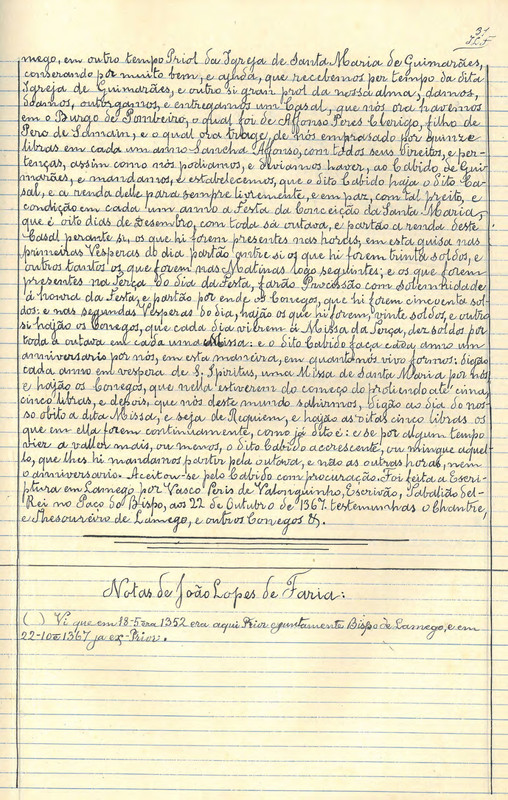 31
J.L.F.
mego, em outro tempo Priol da Igreja de Santa Maria de Guimarães,
conserando por muito bem, e ajuda, que recebemos per tempo da dita
Igreja de Guimarães, e outro si gram prol da nossa alma, damos,
doamos, outorgamos, e entregamos um Casal, que nós ora havemos
em o Burgo de Pombeiro, o qual foi de Affonso Peres Clerigo, filho de
Pero de Samain, e o qual ora trage, de nós emprasado por quinze
libras em cada um anno Sancha Affonso, com todos seus direitos, e per-
tenças, assim como nós podiamos, e deviamos haver, ao Cabido de Gui-
marães, e mandamos, e estabelecemos, que o dito Cabido haja o dito Ca-
sal, e a renda delle para sempre livremente, e em paz, com tal preito, e
condição em cada um anno a Festa da Conceição da Santa Maria,
que é oito dias de Desembro, com toda sá outava, e partão a renda deste
Casal perante si, os que hi forem presentes nas horas, em esta guisa nas
primeiras Vesperas do dia partão antre si os que hi forem trinta soldos, e
outros tantos os que forem nas Matinas logo seguintes; e os que forem
presentes na Terça do dia da Festa, farão Procissão com solemnidade
á honra da Festa, e partão por ende os Conegos, que hi forem cincoenta sol-
dos: e nas segundas Vesperas do dia, hajão os que hi forem, vinte soldos, e outro
si hajão os Conegos, que cada dia vierem á Missa da Terça, dez soldos por
toda a outava em cada uma Missa: e o dito Cabido faça cada anno um
anniversario por nós, em esta maneira, em quanto nós vivo formos: digão
cada anno em vespera de S. Spiritus, uma Missa de Santa Maria por nós
e hajão os Conegos, que nella estverem do começo do proliendo até cima,
cinco libras, e depois, que nós deste mundo sahirmos, digão ao dia do nos-
so obito a dita Missa, e seja de Requiem, e hajão as ditas cinco libras os
que em ella forem continuamente, como já dito é: e se por algum tempo
vier a valler mais, ou menos, o dito Cabido acrescente, ou mingue aquel-
lo, que lhes hi mandamos partir pela outava, e não as outras horas, nem
o anniversario. Aceitou-se pelo Cabido com procuração. Foi feita a Escri-
ptura em Lamego por Vasco Peris de Valonguinho, Escrivão, Taballião del-
Rei no Paço do Bispo, aos 22 de Outubro de 1367. testemunhas o Chantre,
e Thesoureiro de Lamego, e outros Conegos &.
Notas de João Lopes de Faria:
( ) Vi que em 18-5 era 1352 era aqui Prior e juntamente Bispo de Lamego, e em
22-10 1367 ja ex-Prior.